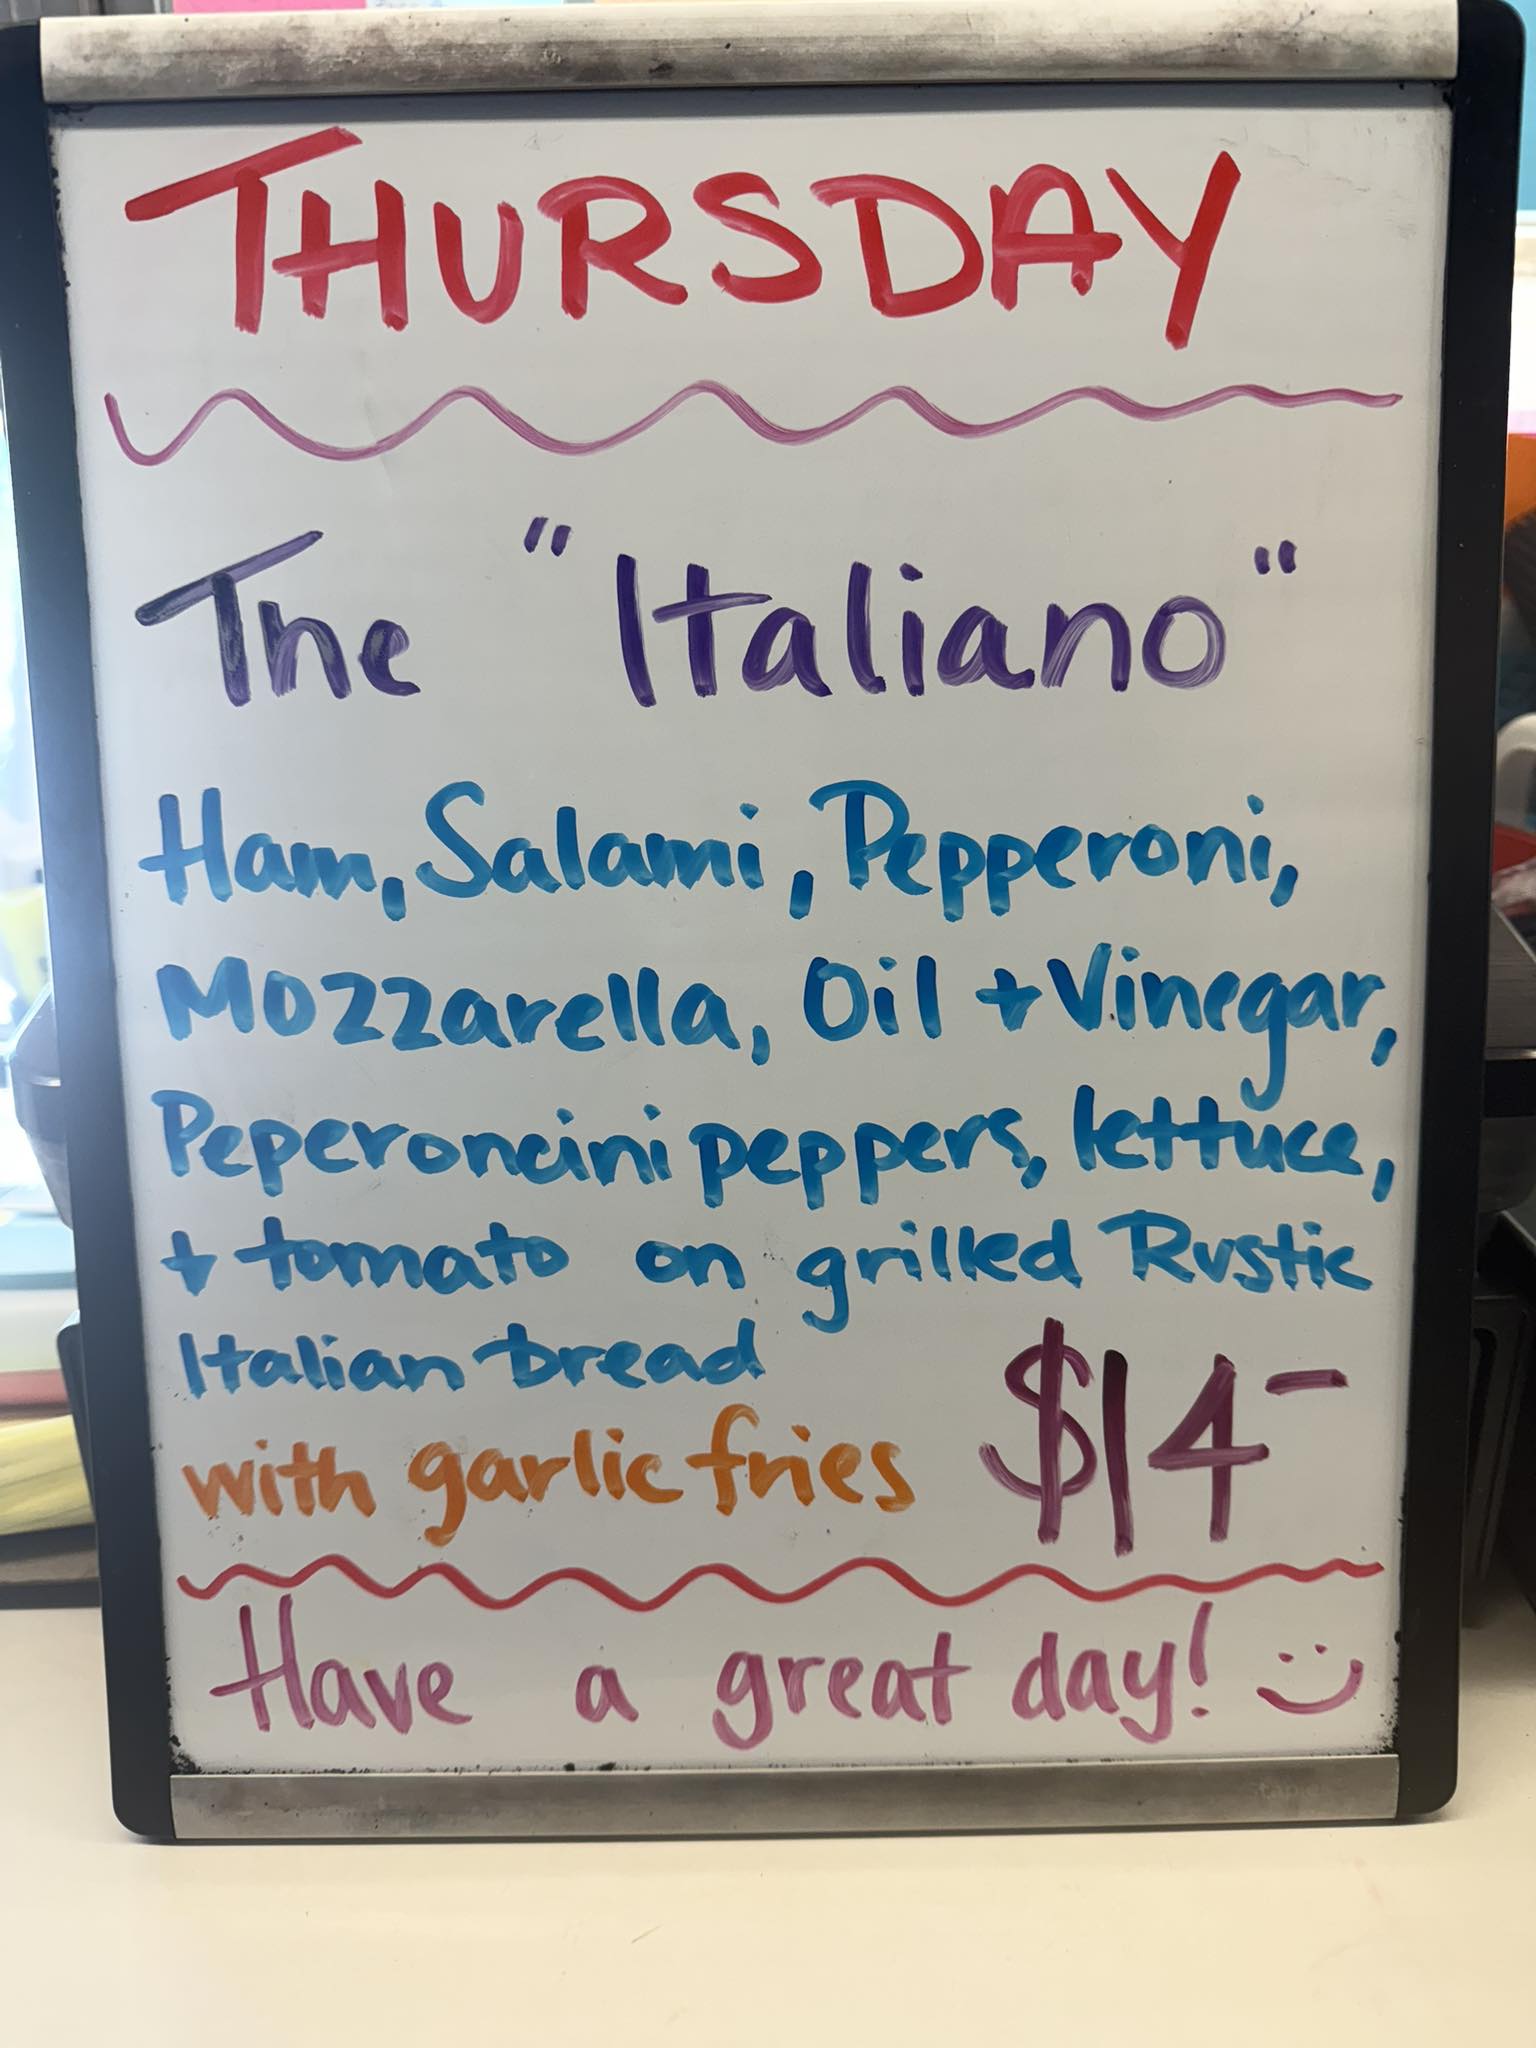 THURSDAY
The "Italiano"
Ham, Salami, Pepperoni,
Mozzarella, Oil + Vinegar,
Peperoncini peppers, lettuce,
+ tomato on grilled Rustic
Italian bread
with garlic fries $14-
Have a great day!
Staples